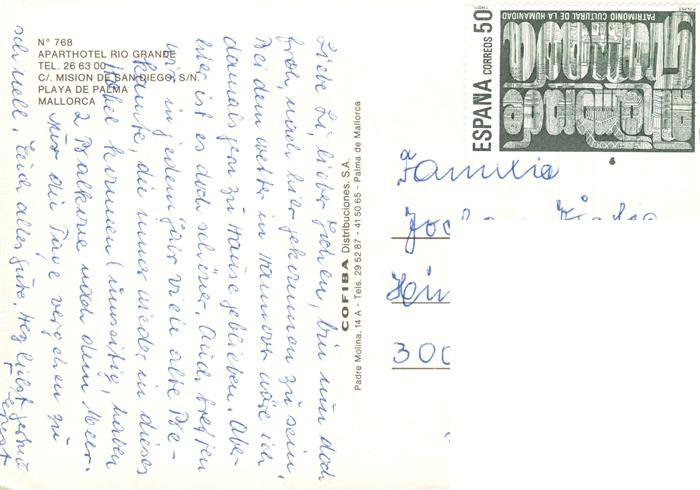 Nº 768
APARTHOTEL RIO GRANDE
TEL. 26 63 00
C/. MISION DE SAN DIEGO, S/N.
PLAYA DE PALMA
MALLORCA
Liebe Li, lieber Jochen, bin nun doch
froh, nach hier gekommen zu sein.
Bei dem Wetter in Hannover wäre ich
damals gern zu Hause geblieben. Aber
hier ist es doch schöner. Auch treffen
wir in jedem Jahr viele alte Be-
kannte, die immer wieder in dieses
Hotel kommen (umseitig, haben
2 Balkone nach dem Meer.
Nur die Tage vergehen zu
schnell. Euch alles gute. Herzlichst
COFIBA Distribuciones, S.A.
Padre Molina, 14 A - Tels. 29 52 87 - 41 50 65 - Palma de Mallorca
ESPAÑA CORREOS 50
PATRIMONIO CULTURAL DE LA HUMANIDAD
Familie
300